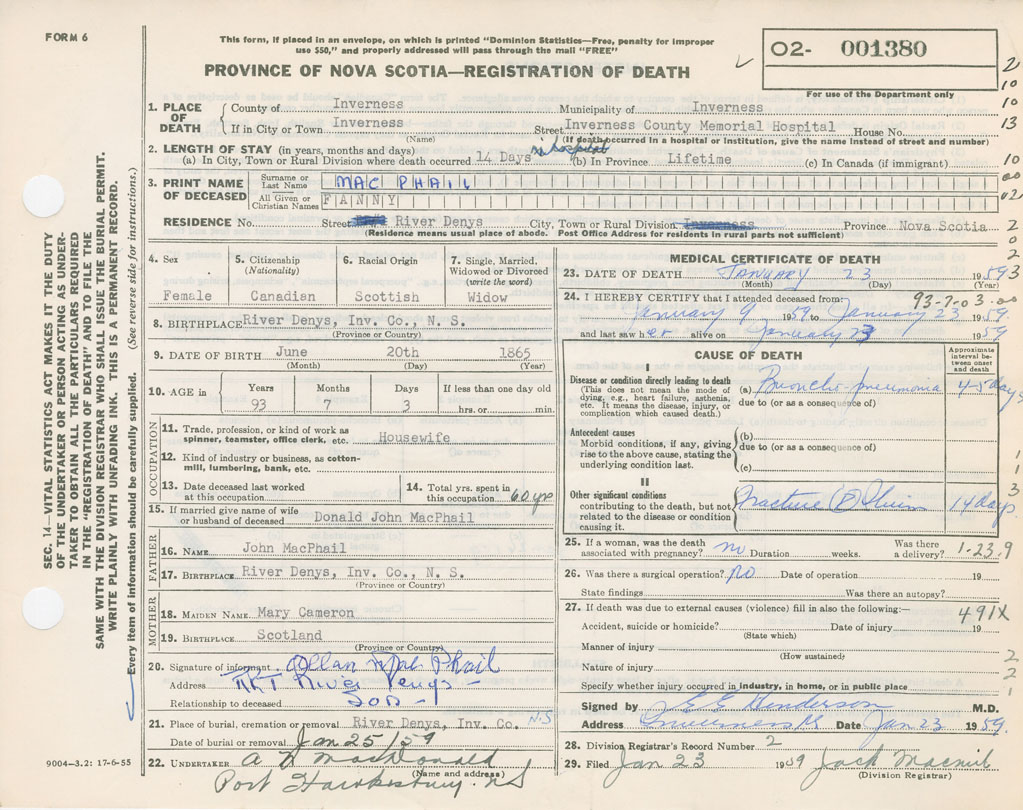 FORM 6
This form, if placed in an envelope, on which is printed "Dominion Statistics—Free, penalty for improper
use $50," and properly addressed will pass through the mail "FREE"
02- 001380
For use of the Department only
PROVINCE OF NOVA SCOTIA—REGISTRATION OF DEATH
1. PLACE OF DEATH { County of Inverness Municipality of Inverness
If in City or Town Inverness Street Inverness County Memorial Hospital House No.
(Name) (If death occurred in a hospital or Institution, give the name instead of street and number)
2. LENGTH OF STAY (in years, months and days)
(a) In City, Town or Rural Division where death occurred 14 Days in hospital (b) In Province Lifetime (c) In Canada (if immigrant)
3. PRINT NAME OF DECEASED
Surname or Last Name MAC PHAIL
All Given or Christian Names FANNY
RESIDENCE No. Street River Denys City, Town or Rural Division Inverness Province Nova Scotia
(Residence means usual place of abode. Post Office Address for residents in rural parts not sufficient)
4. Sex Female
5. Citizenship (Nationality) Canadian
6. Racial Origin Scottish
7. Single, Married, Widowed or Divorced (write the word) Widow
8. BIRTHPLACE River Denys, Inv. Co., N. S.
(Province or Country)
9. DATE OF BIRTH June 20th 1865
(Month) (Day) (Year)
10. AGE in Years 93 Months 7 Days 3 If less than one day old hrs. or min.
OCCUPATION
11. Trade, profession, or kind of work as spinner, teamster, office clerk, etc. Housewife
12. Kind of industry or business, as cotton-mill, lumbering, bank, etc.
13. Date deceased last worked at this occupation
14. Total yrs. spent in this occupation 60 yrs
15. If married give name of wife or husband of deceased Donald John MacPhail
FATHER
16. NAME John MacPhail
17. BIRTHPLACE River Denys, Inv. Co., N. S.
(Province or Country)
MOTHER
18. MAIDEN NAME Mary Cameron
19. BIRTHPLACE Scotland
(Province or Country)
20. Signature of informant Allan MacPhail
Address RR 1 River Denys
Relationship to deceased Son
21. Place of burial, cremation or removal River Denys, Inv. Co. N.S
Date of burial or removal Jan 25/59
22. UNDERTAKER A MacDonald
(Name and address)
Port Hawkesbury NS
9004—3.2: 17-6-55
MEDICAL CERTIFICATE OF DEATH
23. DATE OF DEATH January 23 1959
(Month) (Day) (Year)
93-7-03
24. I HEREBY CERTIFY that I attended deceased from:
January 9 1959 to January 23 1959.
and last saw her alive on January 23 1959
CAUSE OF DEATH
Approximate interval between onset and death
I
Disease or condition directly leading to death
(This does not mean the mode of dying, e.g., heart failure, asthenia, etc. It means the disease, injury, or complication which caused death.)
(a) Broncho-pneumonia 4-5 days
due to (or as a consequence of)
Antecedent causes
Morbid conditions, if any, giving rise to the above cause, stating the underlying condition last.
(b)
due to (or as a consequence of)
(c)
II
Other significant conditions
contributing to the death, but not related to the disease or condition causing it.
Fracture 14 days
25. If a woman, was the death associated with pregnancy? no Duration weeks. Was there a delivery?
1-23-9
26. Was there a surgical operation? no Date of operation 19
State findings Was there an autopsy?
27. If death was due to external causes (violence) fill in also the following:—
491X
Accident, suicide or homicide? Date of injury 19
(State which)
Manner of injury
(How sustained)
Nature of injury
Specify whether injury occurred in industry, in home, or in public place
Signed by E E Henderson M.D.
Address Inverness NS Date Jan 23 1959
28. Division Registrar's Record Number 2
29. Filed Jan 23 1959 Jack Macneil
(Division Registrar)
SEC. 14—VITAL STATISTICS ACT MAKES IT THE DUTY
OF THE UNDERTAKER OR PERSON ACTING AS UNDER-
TAKER TO OBTAIN ALL THE PARTICULARS REQUIRED
IN THE "REGISTRATION OF DEATH" AND TO FILE THE
SAME WITH THE DIVISION REGISTRAR WHO SHALL ISSUE THE BURIAL PERMIT.
WRITE PLAINLY WITH UNFADING INK. THIS IS A PERMANENT RECORD.
Every item of information should be carefully supplied. (See reverse side for instructions.)
2
10
10
13
10
00
02
2
0
2
3
1
1
3
2
2
1